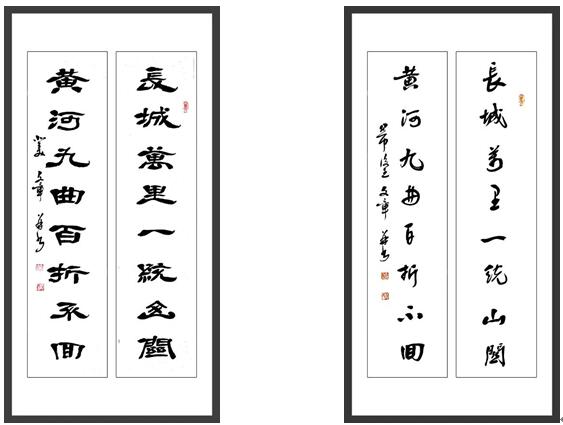 長城萬里一統山關
黄河九曲百折不囬
文章
長城萬里一統山關
黄河九曲百折不囬
文章